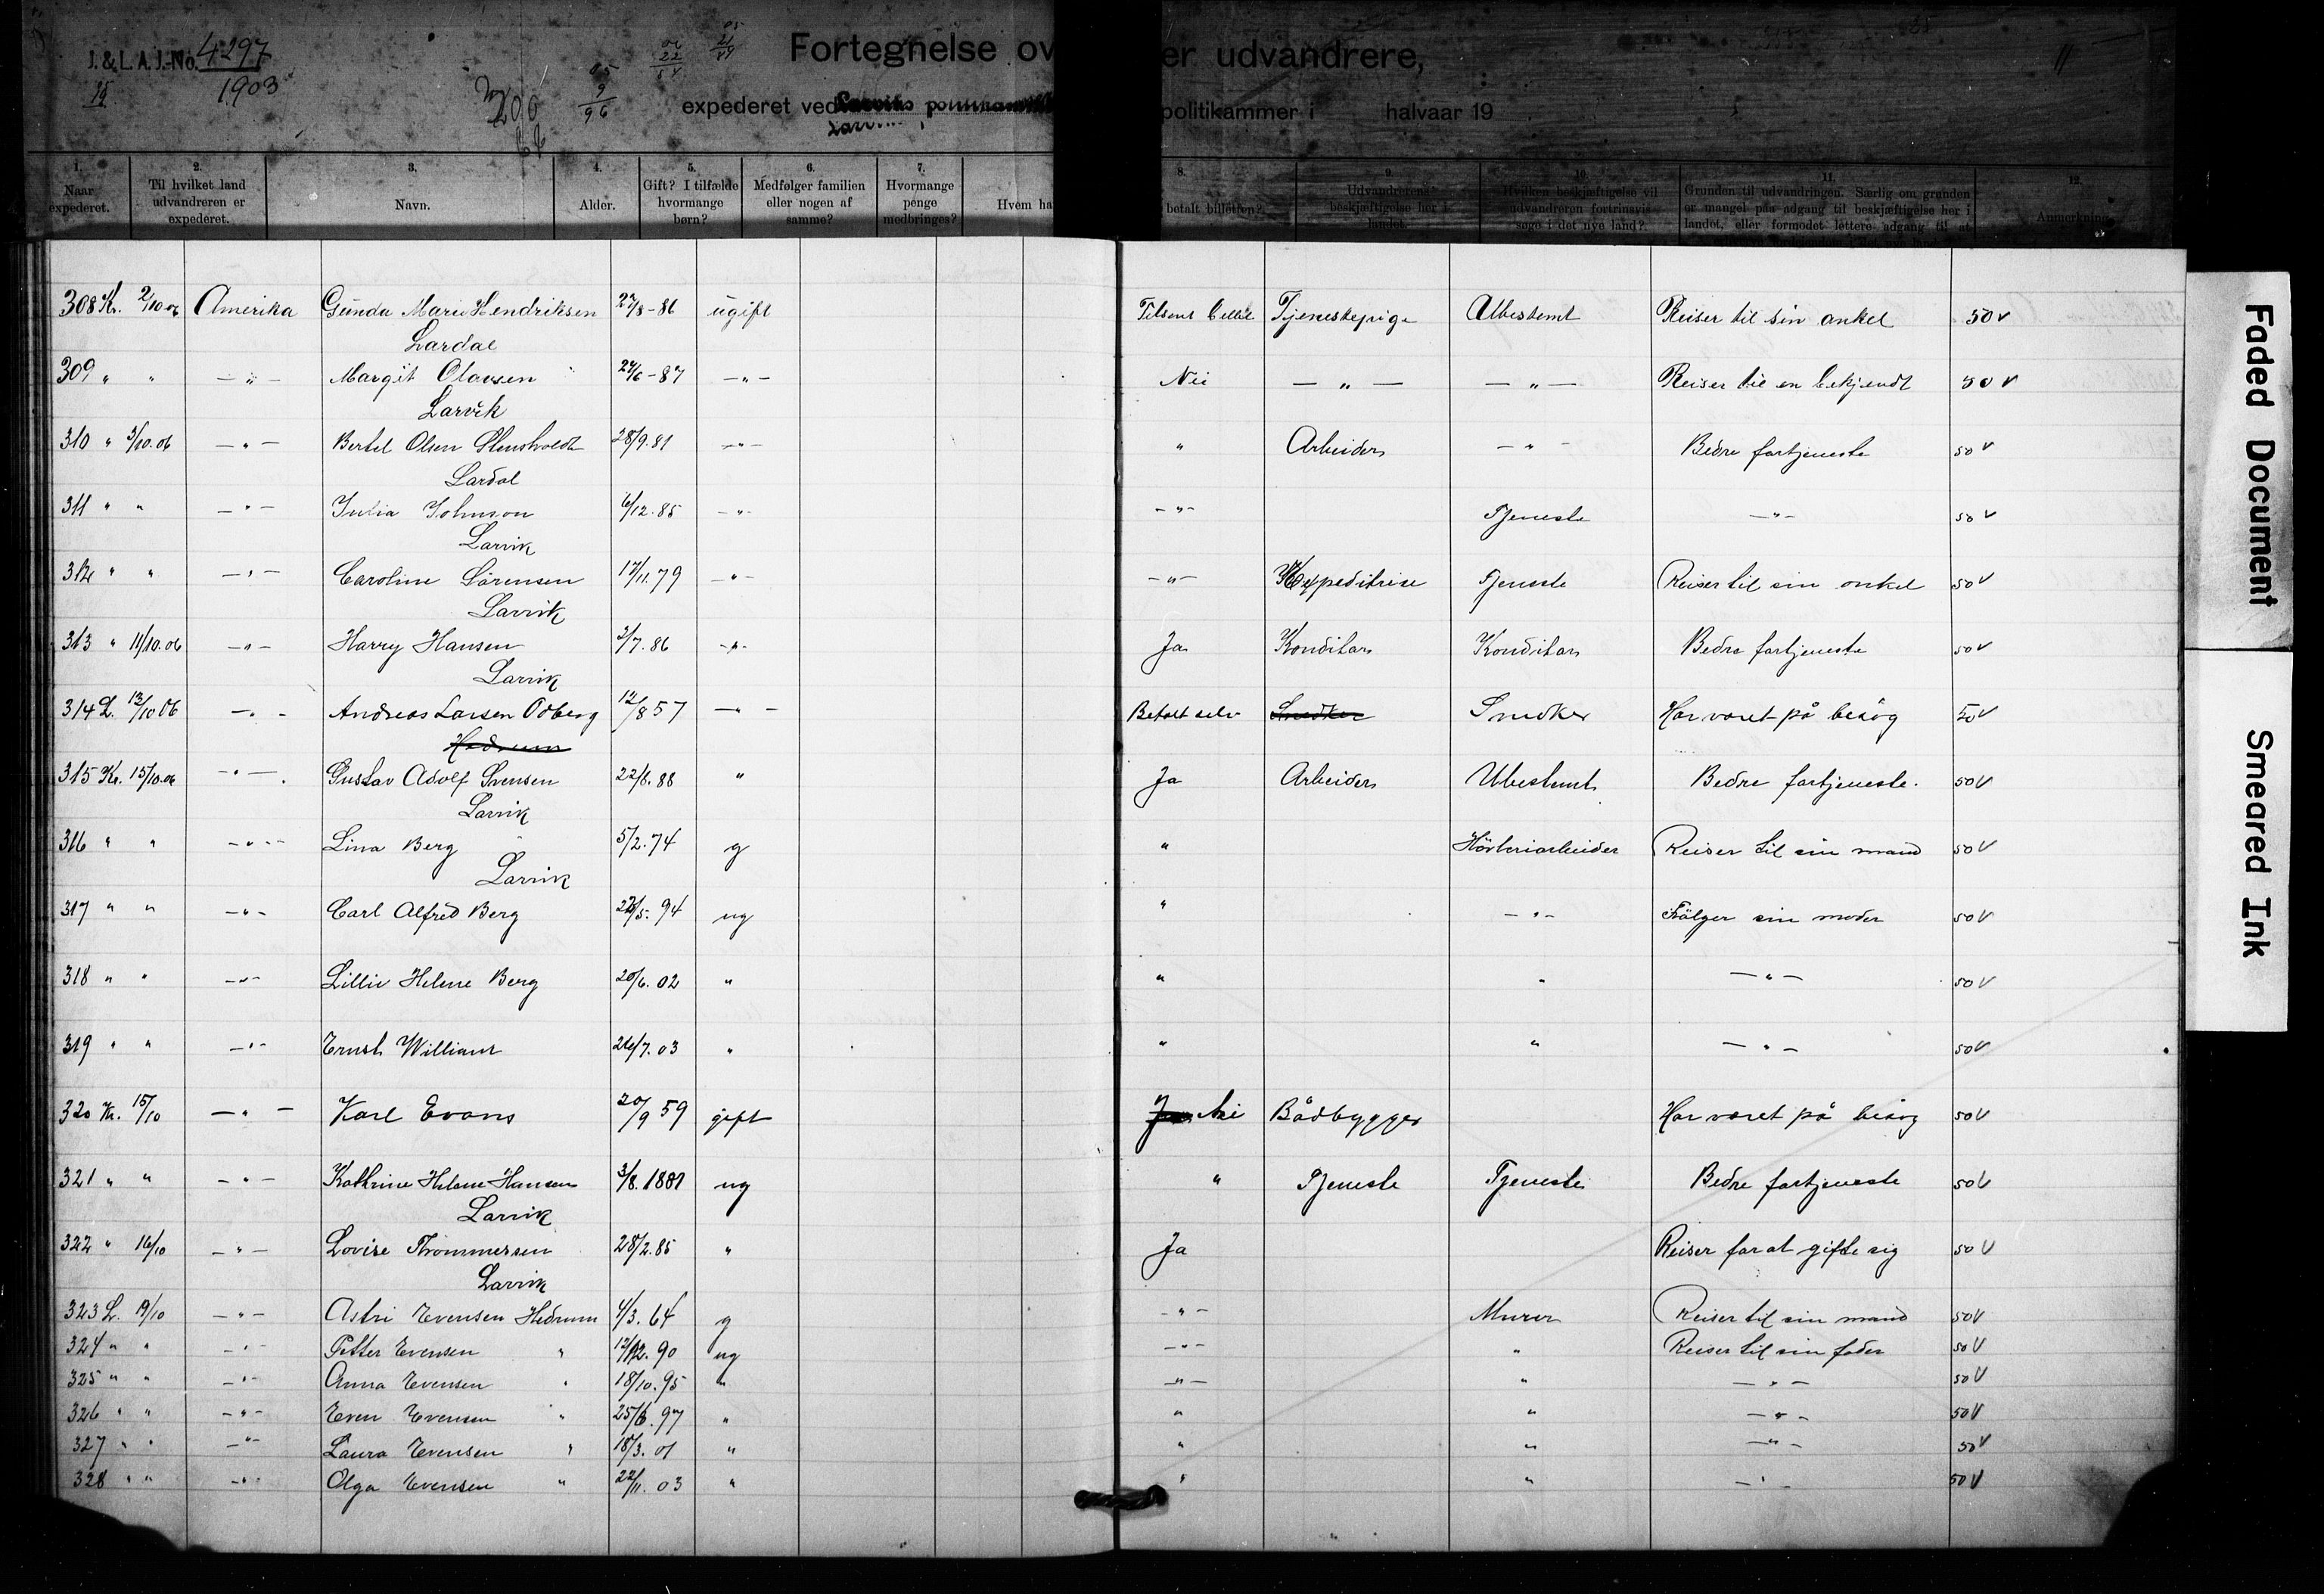 J. & L. A. J.-No. 4297
15 1903
200
05 9 96
Fortegnelse ov er udvandrere,
expederet ved politikammer i halvaar 19
1. Naar expederet.
2. Til hvilket land udvandreren er expederet.
3. Navn.
4. Alder.
5. Gift? I tilfælde hvormange børn?
6. Medfølger familien eller nogen af samme?
7. Hvormange penge medbringes?
Hvem ha
8. betalt billetten?
9. Udvandrerens beskjæftigelse her i landet.
10. Hvilken beskjæftigelse vil udvandreren fortrinsvis søge i det nye land?
11. Grunden til udvandringen. Særlig om grunden er mangel paa adgang til beskjæftigelse her i landet, eller formodet lettere adgang til at
12. Anmerkning
308 Kr. 2/10 06 Amerika Gunda Marie Hendriksen 27/8-86 ugift Tilsent billet Tjenestepige Ubestemt Reiser til sin onkel 50 V
Lardal
309 " " — " — Margit Olavsen 24/6-87 — " — Nei — " — — " — Reiser til en bekjendt 50 V
Larvik
310 " 3/10.06 — " — Bertel Olsen Stensholdt 28/9.81 — " — " Arbeider — " — Bedre fortjeneste 50 V
Lardal
311 " " — " — Julia Johnson 6/12.85 — " — — " — Tjeneste — " — 50 V
Larvik
312 " " — " — Caroline Sörensen 17/11.79 — " — — " — Expeditrise Tjeneste Reiser til sin onkel 50 V
Larvik
313 " 11/10.06 — " — Harry Hansen 2/7.86 — " — Ja Konditor Konditor Bedre fortjeneste 50 V
Larvik
314 L. 13/10 06 — " — Andreas Larsen Odberg 12/8 57 — " — Betalt selv Snedker Snedker Har været på besøg 50 V
Hedrum
315 Kr. 15/10.06 — " — Gustav Adolf Svensen 22/8.88 " Ja Arbeider Ubestemt Bedre fortjeneste. 50 V
Larvik
316 " " — " — Lina Berg 5/2.74 g " Hövleriarbeider Reiser til sin mand 50 V
Larvik
317 " " — " — Carl Alfred Berg 24/5.94 ug " — " — Fölger sin moder 50 V
318 " " — " — Lilliv Helene Berg 20/6.02 " " " — " — 50 V
319 " " — " — Ernst William 26/7.03 " " " — " — 50 V
320 Kr. 15/10 — " — Karl Evans 20/9 59 gift Ja Nei Bådbygger Har været på besög 50 V
321 " " — " — Kathrine Helene Hansen 3/8.1881 ug " Tjeneste Tjeneste Bedre fortjeneste 50 V
Larvik
322 " 16/10 — " — Lovise Thommersen 28/2.85 " Ja Reiser for at gifte sig 50 V
Larvik
323 L. 19/10 — " — Astri Evensen Hedrum 4/3.64 g — " — Murer Reiser til sin mand 50 V
324 " " — " — Petter Evensen " 12/12.90 ug — " — " Reiser til sin fader 50 V
325 " " — " — Anna Evensen " 18/10.95 " — " — " — " — 50 V
326 " " — " — Even Evensen " 25/6.97 " " " — " — 50 V
327 " " — " — Laura Evensen " 18/3.01 " " " — " — 50 V
328 " " — " — Olga Evensen " 22/11.03 " " " — " — 50 V
Faded Document
Smeared Ink